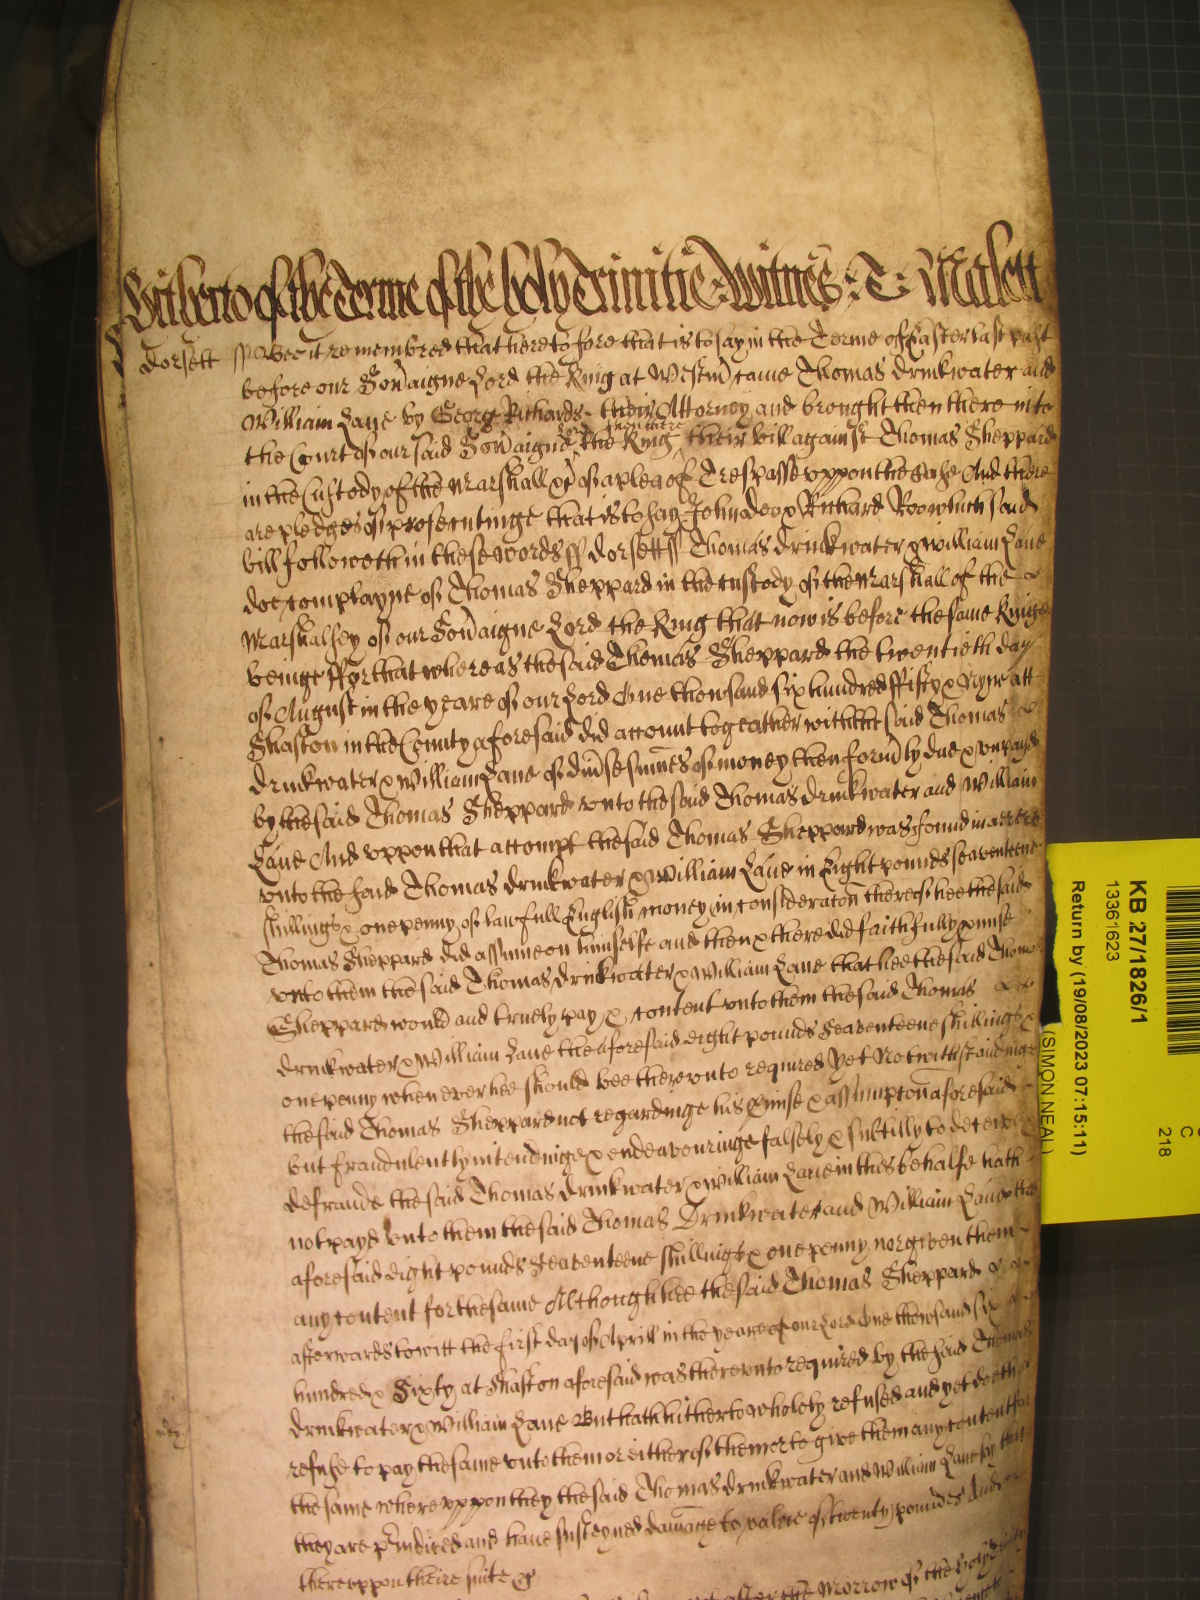 Hitherto of the Terme of the holy Trinitie : Witnes : T : Malett
Dorsett ss Bee it remembred that heretofore that is to say in the Terme of Easter last past
before our Sov'aigne Lord the King at Westm' came Thomas Drinkwater and
William Lane by George Richards their Attorney and brought then there into
the Court of our said Sov'aigne Lord the King then there their bill against Thomas Sheppard
in the Custody of the Marshall &c of a plea of Trespasse uppon the Case And there
are pledges of prosecutinge that is to say John Doo & Richard Roo which said
bill followeth in these words ss Dorsett ss Thomas Drinkwater & William Lane
doe complayne of Thomas Sheppard in the custody of the Marshall of the
Marshalsey of our Sov'aigne Lord the King that now is before the same Kinge
beinge ffor that whereas the said Thomas Sheppard the twentieth day
of August in the yeare of our Lord One thowsand six hundred ffifty & Nyne att
Shaston in the County aforesaid did account togeather with the said Thomas
Drinkwater & William Lane of div'se sum'es of money then form'ly due & unpayd
by the said Thomas Sheppard unto the said Thomas Drinkwater and William
Lane And uppon that accompt the said Thomas Sheppard was found in arrere
unto the said Thomas Drinkwater & William Lane in Eight pounds seaventeene
shillings & one penny of lawfull English money in consideracon thereof hee the said
Thomas Sheppard did assume on himselfe and then & there did faithfully p'mise
unto them the said Thomas Drinkwater & William Lane that hee the said Thomas
Sheppard would and truely pay & content unto them the said Thomas
Drinkwater & William Lane the aforesaid eight pounds seaventeene shillings &
one penny when ever hee should bee thereunto required Yet Notwithstandinge
the said Thomas Sheppard not regardinge his p'mise & assumpton aforesaid
but fraudulently intendinge & endeavouringe falsely & subtilly to deceive &
defraude the said Thomas Drinkwater & William Lane in this behalfe hath
not payd unto them the said Thomas Drinkwater and William Lane the
aforesaid eight pounds seaventeene shillings & one penny nor given them
any content for the same Although hee the said Thomas Sheppard
afterwards to witt the first day of Aprill in the yeare of our Lord One thowsand six
hundred & Sixty at Shaston aforesaid was thereunto required by the said Thomas
Drinkwater & William Lane But hath hitherto wholely refused and yet doeth
refuse to pay the same unto them or either of them or to give them any content for
the same whereuppon they the said Thomas Drinkwater and William Lane say that
they are p'iudiced and have susteyned damage to value of twenty pounds And
thereuppon theire suite &c
after the Morrow of the Holy
KB 27/1826/1
13361623
Return by (19/08/2023 07:15:11)
(SIMON NEAL)
C
218